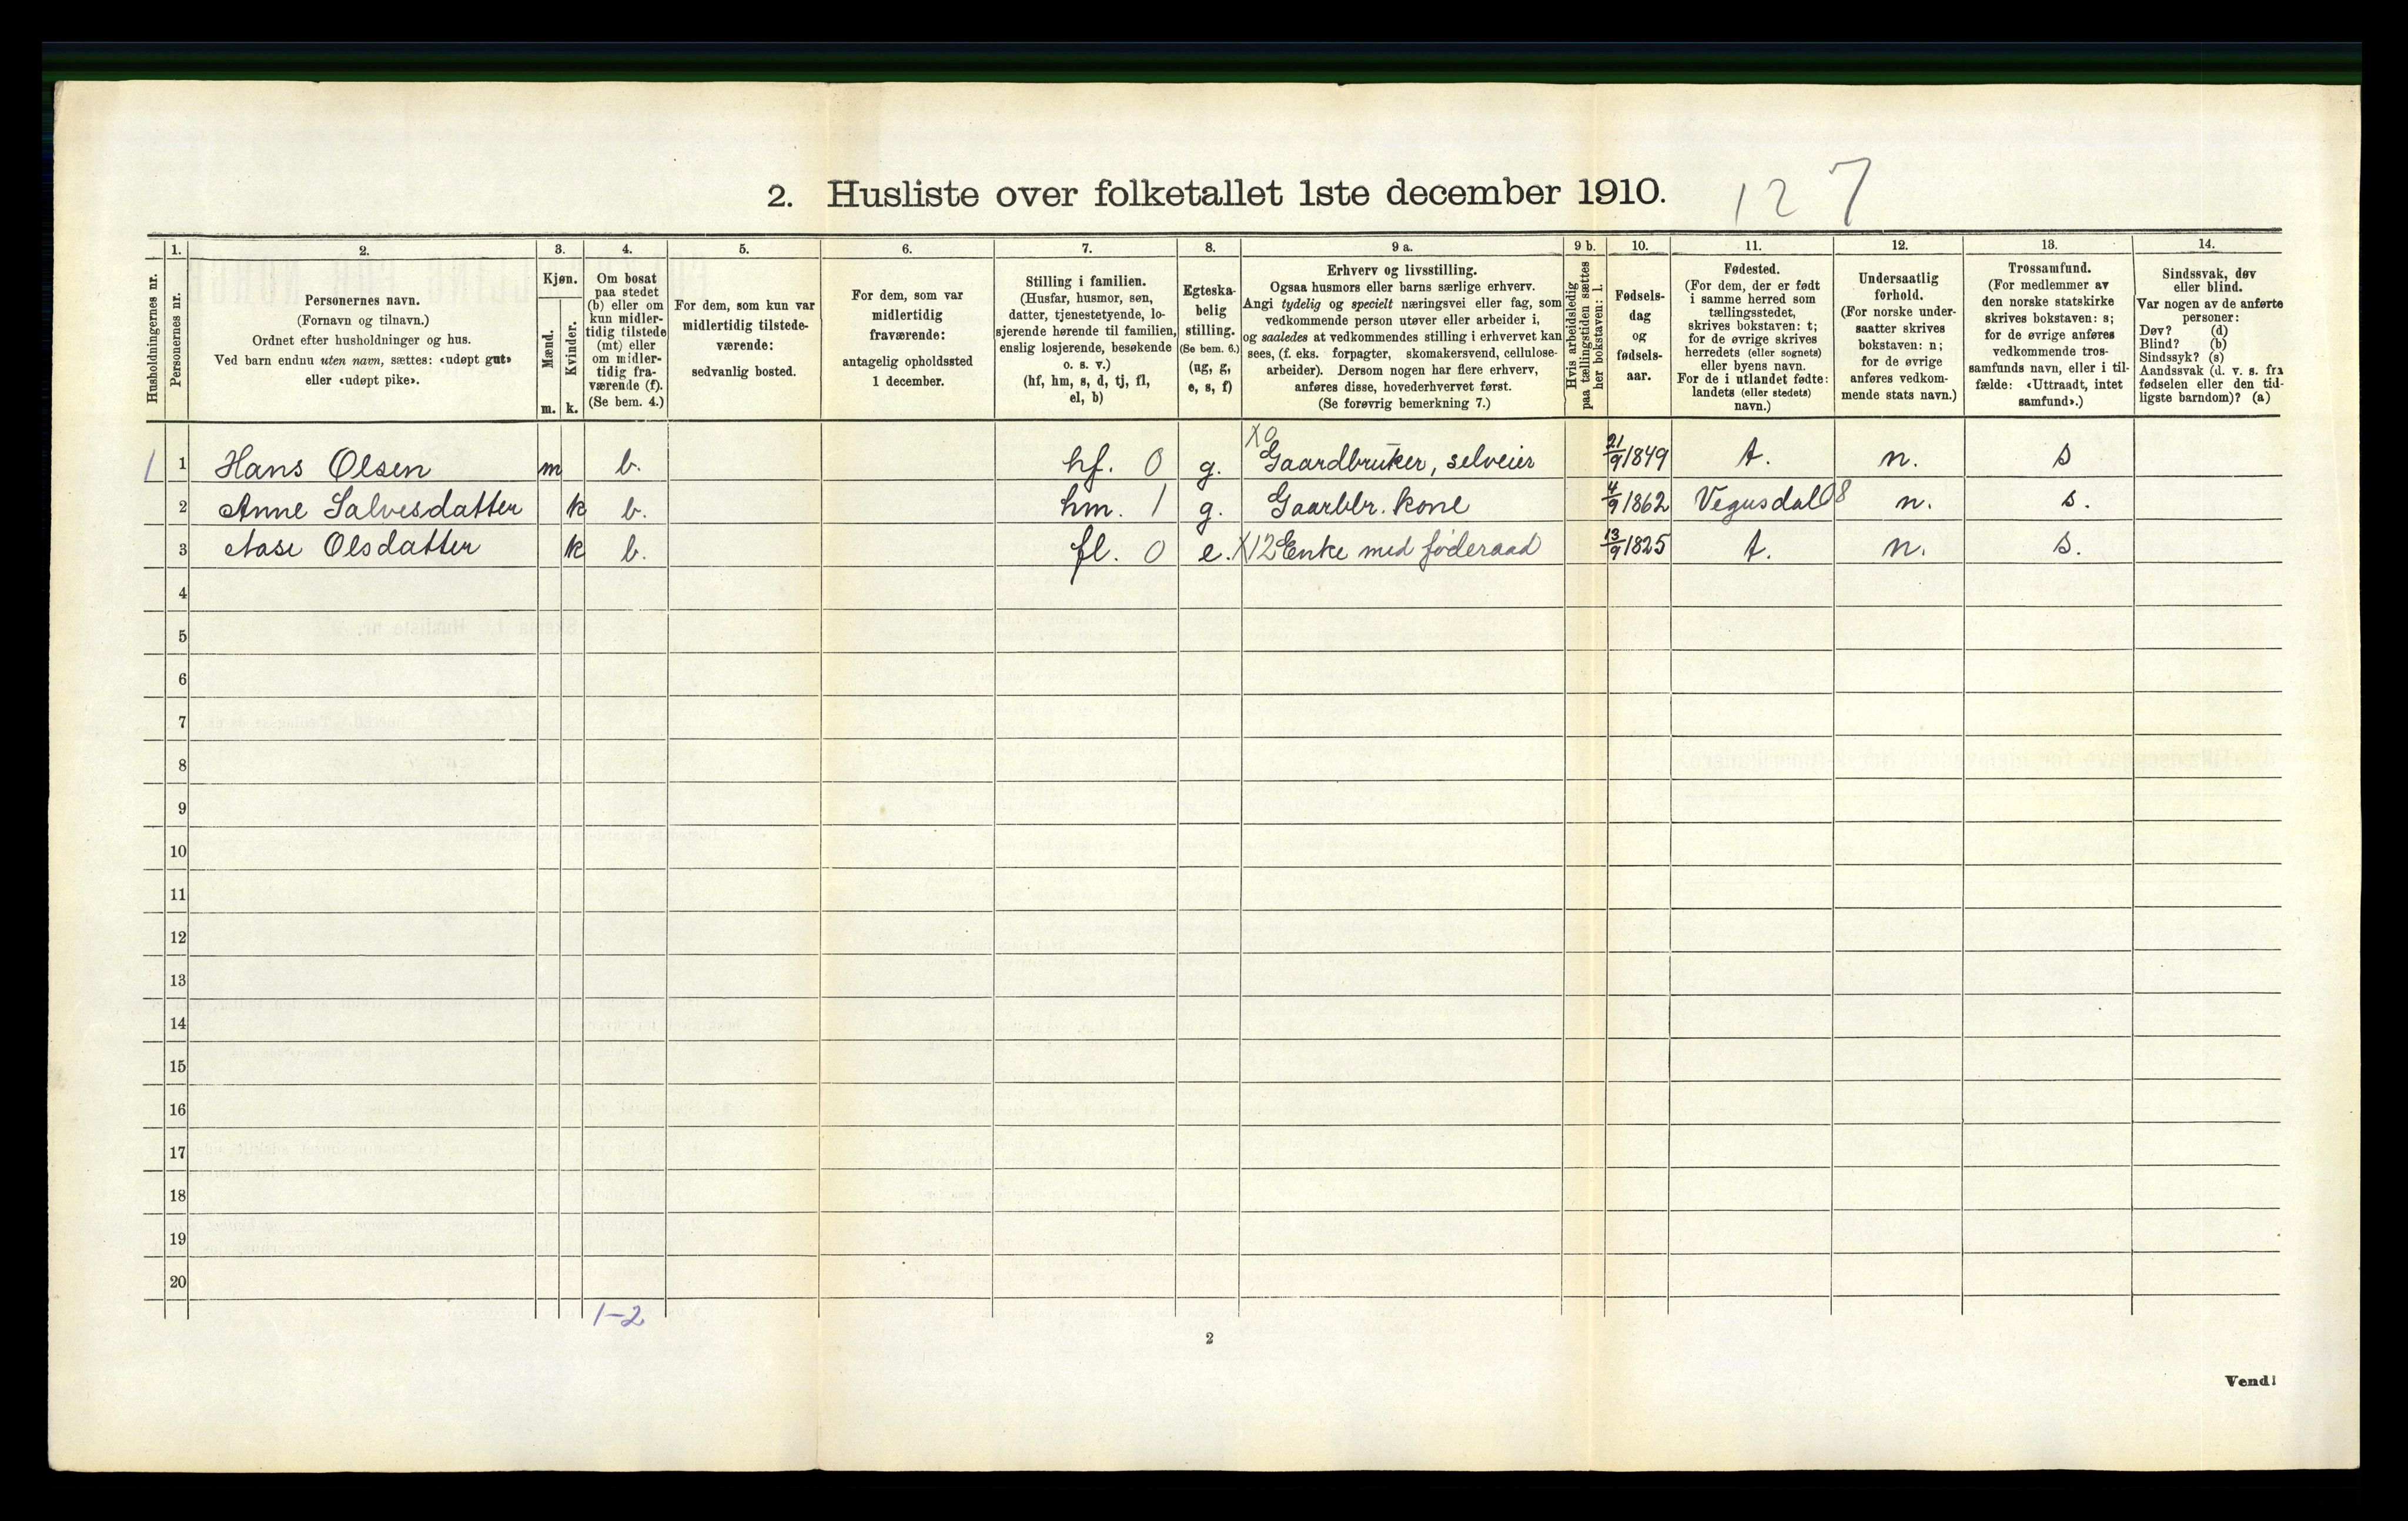 2. Husliste over folketallet 1ste december 1910. 127
Husholdningernes nr.
1.
Personernes nr.
2.
Personernes navn.
(Fornavn og tilnavn.)
Ordnet efter husholdninger og hus.
Ved barn endnu uten navn, sættes: «udøpt gut»
eller «udøpt pike».
3.
Kjøn.
Mænd.
Kvinder.
m. k.
4.
Om bosat
paa stedet
(b) eller om
kun midler-
tidig tilstede
(mt) eller
om midler-
tidig fra-
værende (f).
(Se bem. 4.)
5.
For dem, som kun var
midlertidig tilstede-
værende:
sedvanlig bosted.
6.
For dem, som var
midlertidig
fraværende:
antagelig opholdssted
1 december.
7.
Stilling i familien.
(Husfar, husmor, søn,
datter, tjenestetyende, lo-
sjerende hørende til familien,
enslig losjerende, besøkende
o. s. v.)
(hf, hm, s, d, tj, fl,
el, b)
8.
Egteska-
belig
stilling.
(Se bem. 6.)
(ug, g,
e, s, f)
9 a.
Erhverv og livsstilling.
Ogsaa husmors eller barns særlige erhverv.
Angi tydelig og specielt næringsvei eller fag, som
vedkommende person utøver eller arbeider i,
og saaledes at vedkommendes stilling i erhvervet kan
sees, (f. eks. forpagter, skomakersvend, cellulose-
arbeider). Dersom nogen har flere erhverv,
anføres disse, hovederhvervet først.
(Se forøvrig bemerkning 7.)
9 b.
Hvis arbeidsledig
paa tællingstiden sættes
her bokstaven: l.
10.
Fødsels-
dag
og
fødsels-
aar.
11.
Fødested.
(For dem, der er født
i samme herred som
tællingsstedet,
skrives bokstaven: t;
for de øvrige skrives
herredets (eller sognets)
eller byens navn.
For de i utlandet fødte:
landets (eller stedets)
navn.)
12.
Undersaatlig
forhold.
(For norske under-
saatter skrives
bokstaven: n;
for de øvrige
anføres vedkom-
mende stats navn.)
13.
Trossamfund.
(For medlemmer av
den norske statskirke
skrives bokstaven: s;
for de øvrige anføres
vedkommende tros-
samfunds navn, eller i til-
fælde: «Uttraadt, intet
samfund».)
14.
Sindssvak, døv
eller blind.
Var nogen av de anførte
personer:
Døv? (d)
Blind? (b)
Sindssyk? (s)
Aandssvak (d. v. s. fra
fødselen eller den tid-
ligste barndom)? (a)
X0
1 1 Hans Olsen m b. hf. 0 g. Gaardbruker, selveier 21/9 1849 t. n. s
2 Anne Salvesdatter k b. hm. 1 g. Gaardbr. kone 4/9 1862 Vegusdal 08 n. s.
3 Aase Olsdatter k b. fl. 0 e. X12 Enke med føderaad 13/9 1825 t. n. s.
4
5
6
7
8
9
10
11
12
13
14
15
16
17
18
19
20
1-2
2
Vend!